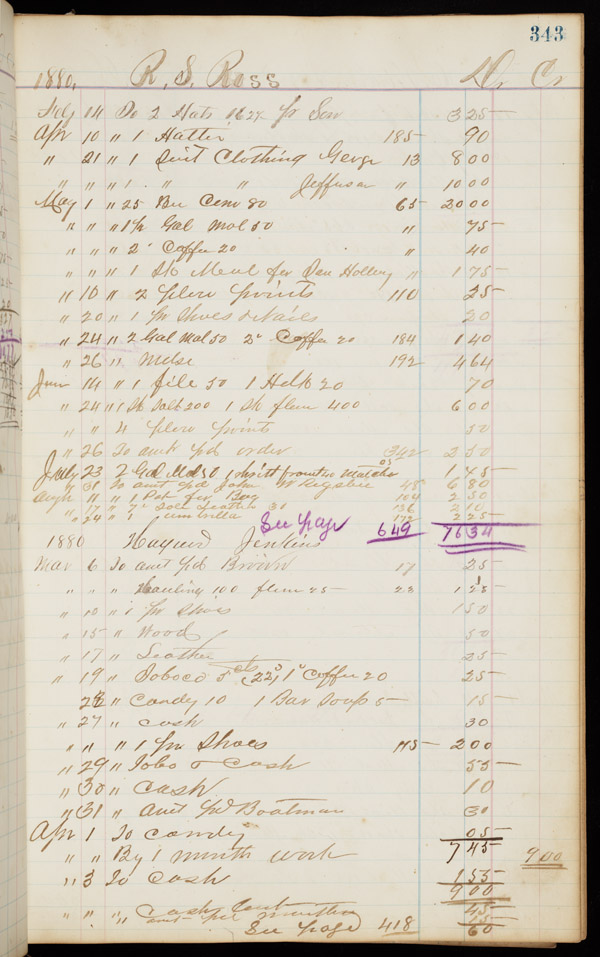 343
1880, R. S. Ross Dr Cr
Feby 14 To 2 Hats 1627 pr Son 325
Apr 10 " 1 Hatter 185 90
" 21 " 1 Suit Clothing George 13 800
" " " 1 " " Jefferson " 1000
May 1 " 25 Bu Corn 80 65 2000
" " " 1½ Gal Mol 50 " 75
" " " 2 " Coffee 20 " 40
" " " 1 Sk Meal for Dan Holley " 175
" 10 " 2 plow points 110 25
" 20 " 1 pr Shoes 20
" 24 " 2 Gal Mol 50 2 " Coffee 20 184 140
" 26 " Mdse 192 464
Jun 14 " 1 file 50 1 Hdk 20 70
" 24 " 1 Sk Salt 200 1 Sk flour 400 600
" " " 4 plow points 50
" 26 To amt pd order 342 250
July 23 2 Gal Mol 50 145
" 31 To amt pd John 48 680
Augt 11 " 1 104 250
" 17 " Sole Leather 30 136 210
" 24 " umbrella 172 225
See page 649 7634
1880 Haywood Jenkins
Mar 6 To amt pd Brown 17 25
" " " Hauling 100 flour 25 23 125
" 10 " 1 pr Shoes 150
" 15 " Wood 50
" 17 " Leather 25
" 19 " Toboco 5 cts (22) 1 " Coffee 20 25
22 " Candy 10 1 Bar Soup 5 15
" 27 " Cash 30
" " " 1 pr Shoes 115 200
" 29 " Tobo & Cash 55
" 30 " Cash 10
" 31 " amt pd Boatman 30
Apr 1 To Candy 05
745
" " By 1 month work 900
" 3 To Cash 155
900
" " " Cash 45
" amt per 15
See page 418 60